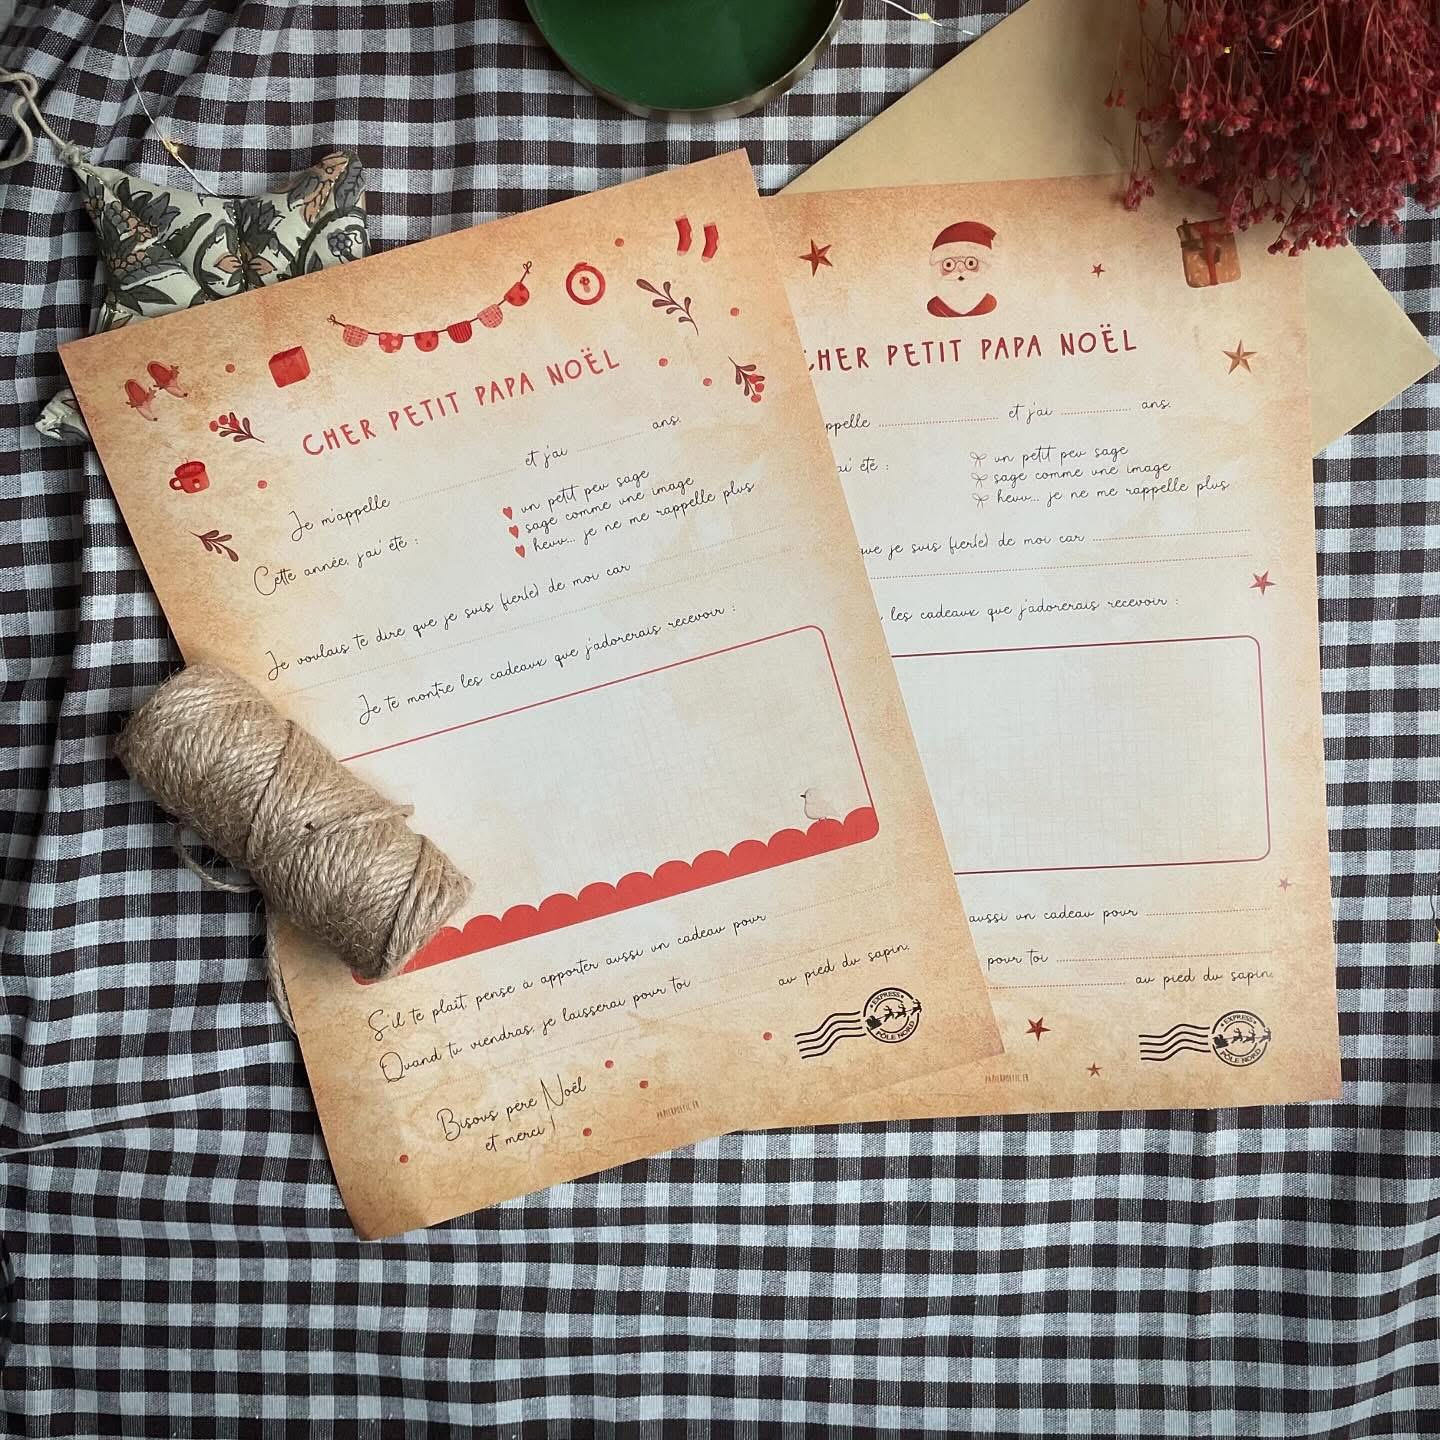 CHER PETIT PAPA NOËL
Je m'appelle et j'ai ans.
Cette année, j'ai été :
un petit peu sage
sage comme une image
heuu... je ne me rappelle plus
Je voulais te dire que je suis fier(e) de moi car
Je te montre les cadeaux que j'adorerais recevoir :
S'il te plaît, pense à apporter aussi un cadeau pour
Quand tu viendras, je laisserai pour toi
au pied du sapin.
Bisous père Noël
et merci !
EXPRESS
PÔLE NORD
CHER PETIT PAPA NOËL
ppelle et j'ai ans.
ai été :
un petit peu sage
sage comme une image
heuu... je ne me rappelle plus
que je suis fier(e) de moi car
les cadeaux que j'adorerais recevoir :
aussi un cadeau pour
pour toi
au pied du sapin.
EXPRESS
PÔLE NORD